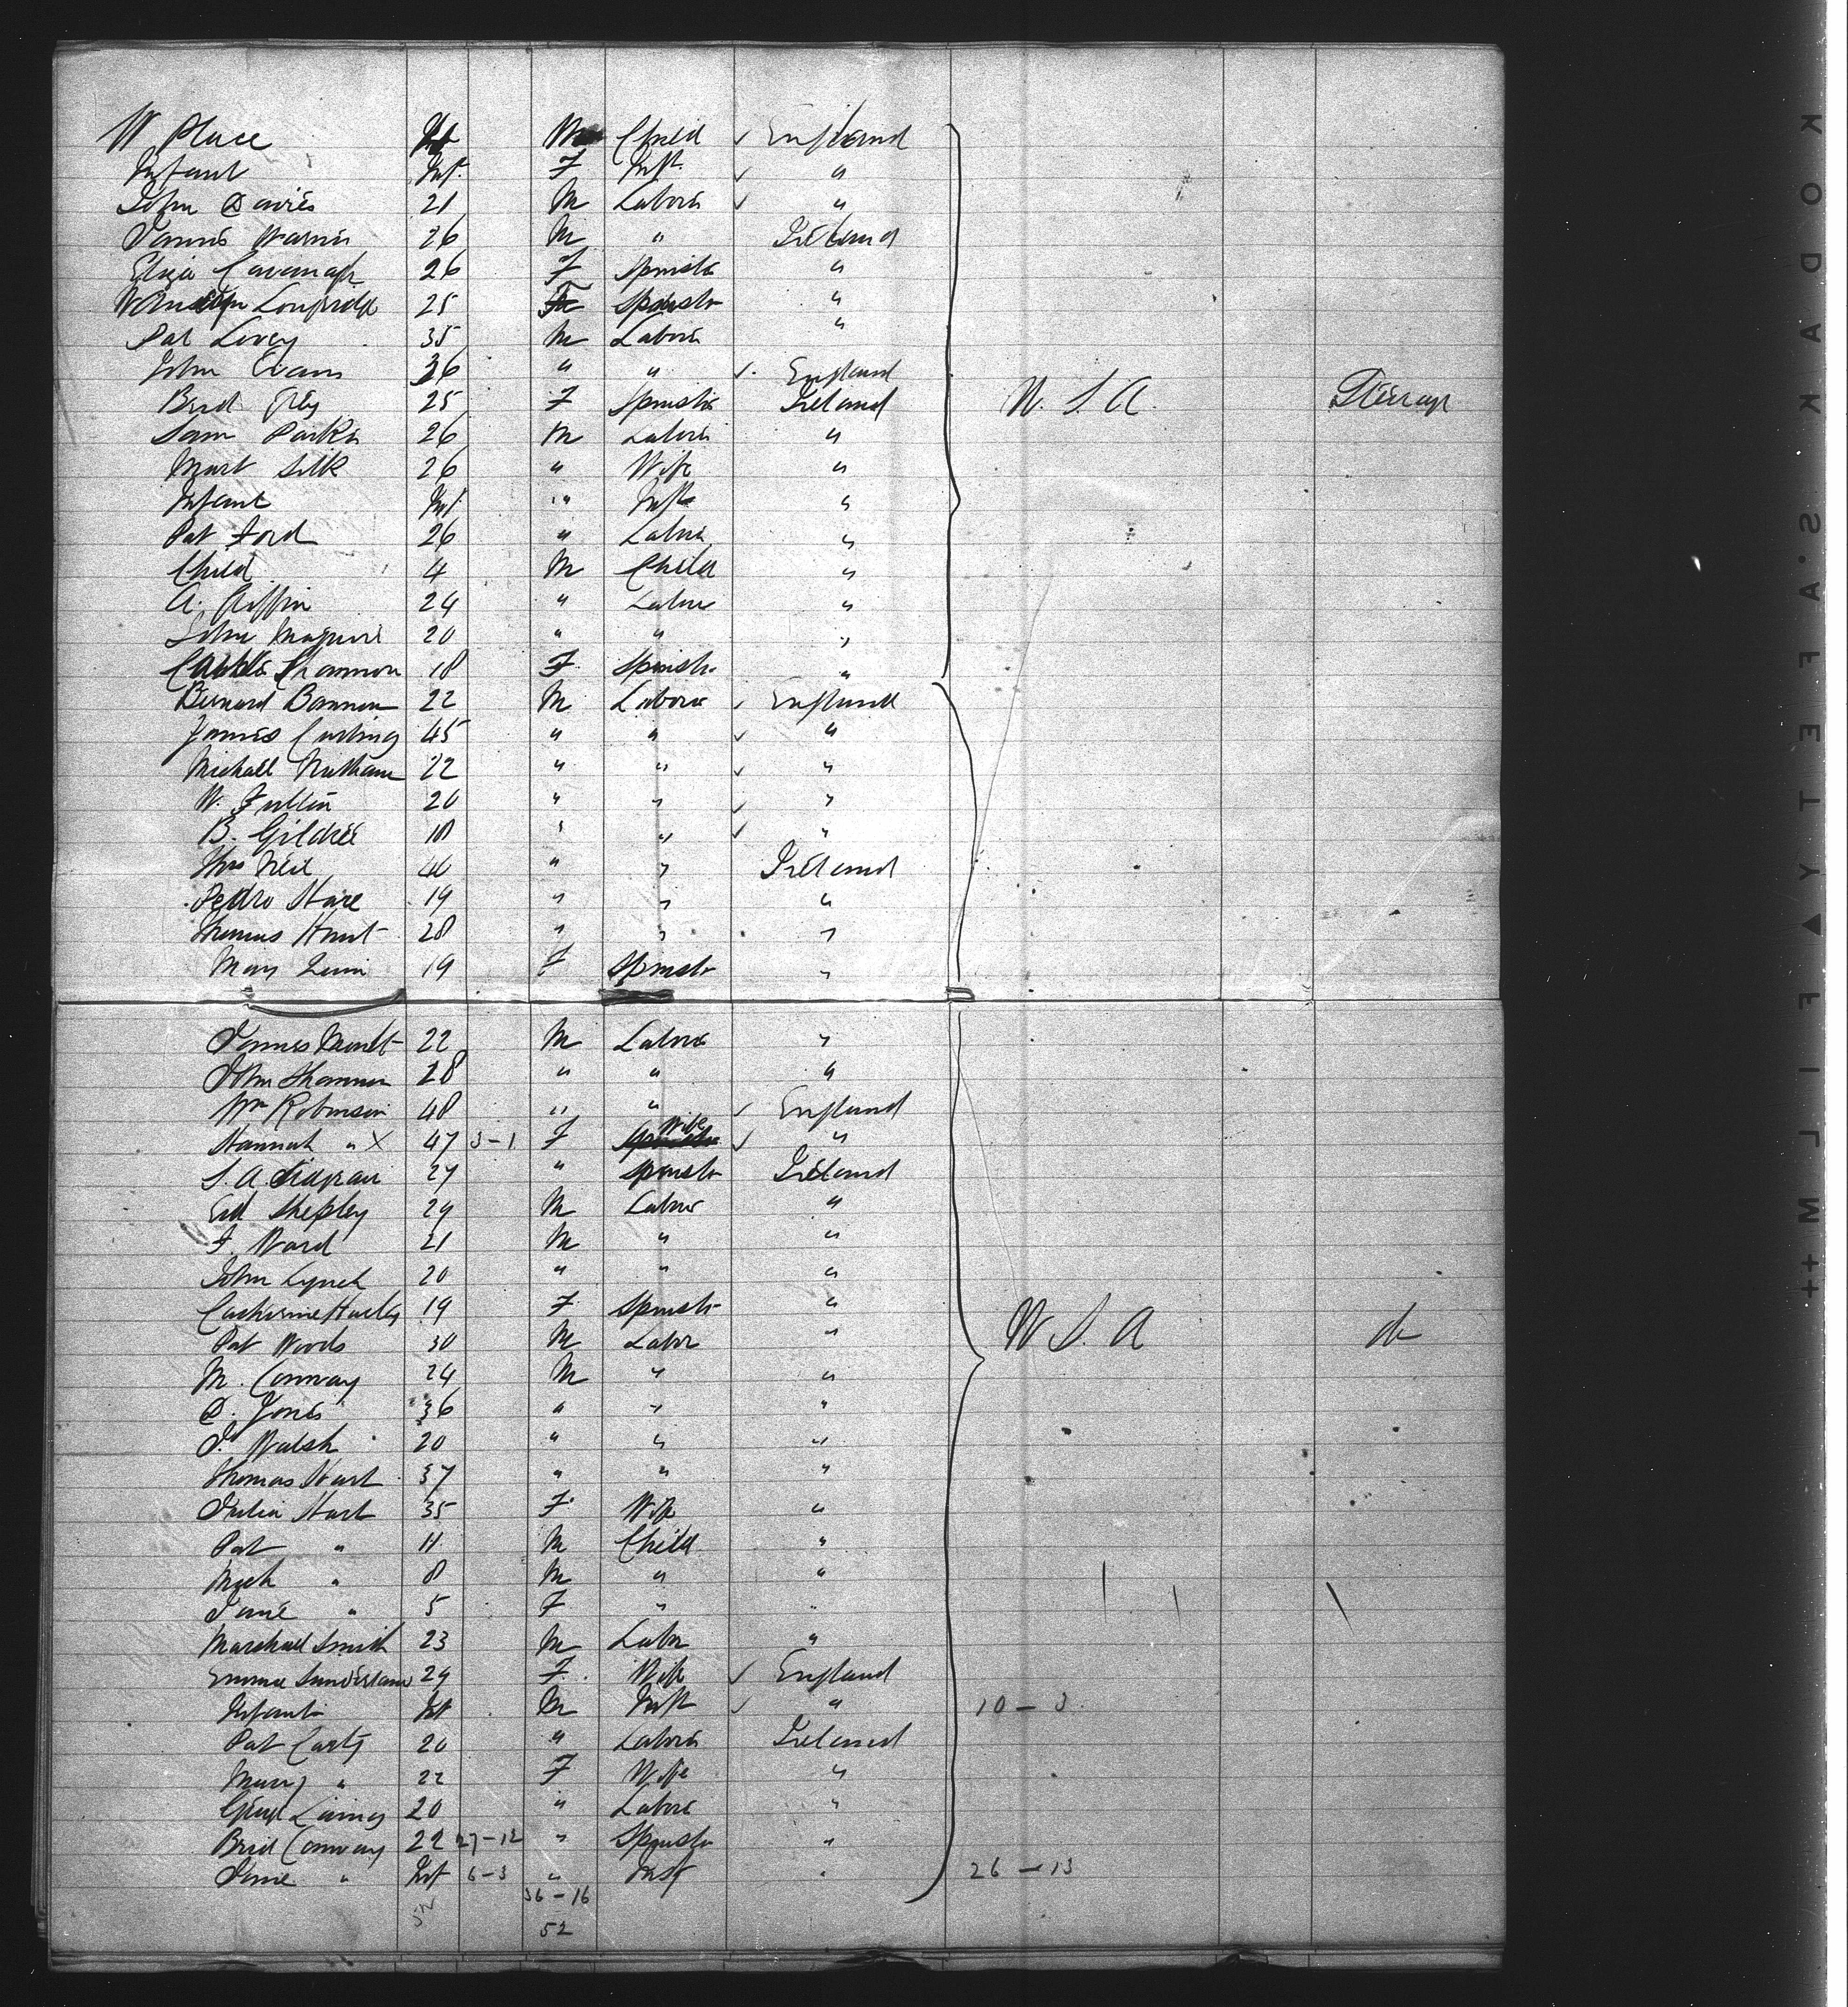 W Place Inf M Child ✓ England
Infant Inf. F Inft. ✓ "
John Davies 21 M Labora ✓ "
James Warner 26 M " Ireland
Eliza Cavanagh 26 F Spinstr "
Longridge 25 F Spinstr "
Pat Lovey 35 M Labora "
John Evans 36 " " ✓ England
Brid 25 F Spinstr Ireland U. S. A. Steerage
Sam Parker 26 M Labora "
Mart Silk 26 " Wife "
Infant Inf " Inft "
Pat Ford 26 " Labora "
Child 4 M Child "
A. Griffin 24 " Labor "
John Maguire 20 " " "
Shannon 18 F Spinstr "
Bernard Bannon 22 M Labora ✓ England
James Curling 45 " " ✓ "
Michall 22 " " ✓ "
W. Fullin 20 " " ✓ "
B. Gildree 18 " " ✓ "
Thos Neil 40 " " Ireland
Pedro Hare 19 " " "
Thomas Hunt 28 " " "
Mary 19 F Spinstr "
James 22 M Labora "
John Shannon 28 " " "
Wm Robinson 48 " " ✓ England
Hannah " X 47 3-1 F Wife ✓ "
S. A. 27 " Spinstr Ireland
Ed Shepley 29 M Labor "
F. Ward 21 M " "
John Lynch 20 " " "
Catherine Hurley 19 F Spinstr "
Pat Woods 30 M Labor " U S. A do
M. Conway 24 M " "
D. Jones 36 " " "
J. Walsh 20 " " "
Thomas Hart 37 " " "
Julia Hart 35 F Wife "
Pat " 11 M Child "
Mich " 8 M " "
Jane " 5 F " "
Marshall Smith 23 M Labr "
Emma Sunderland 29 F. Wife ✓ England
Infant Inf M Inft ✓ " 10 - 3
Pat Carty 20 " Labora Ireland
Mary " 22 F Wife "
20 " Labora "
Brid Conway 22 27-12 " Spinstr "
Jane " Inf 6-3 " Inft " 26 - 13
52 36-16
52
KODAK S.'AFETY▲FILM++